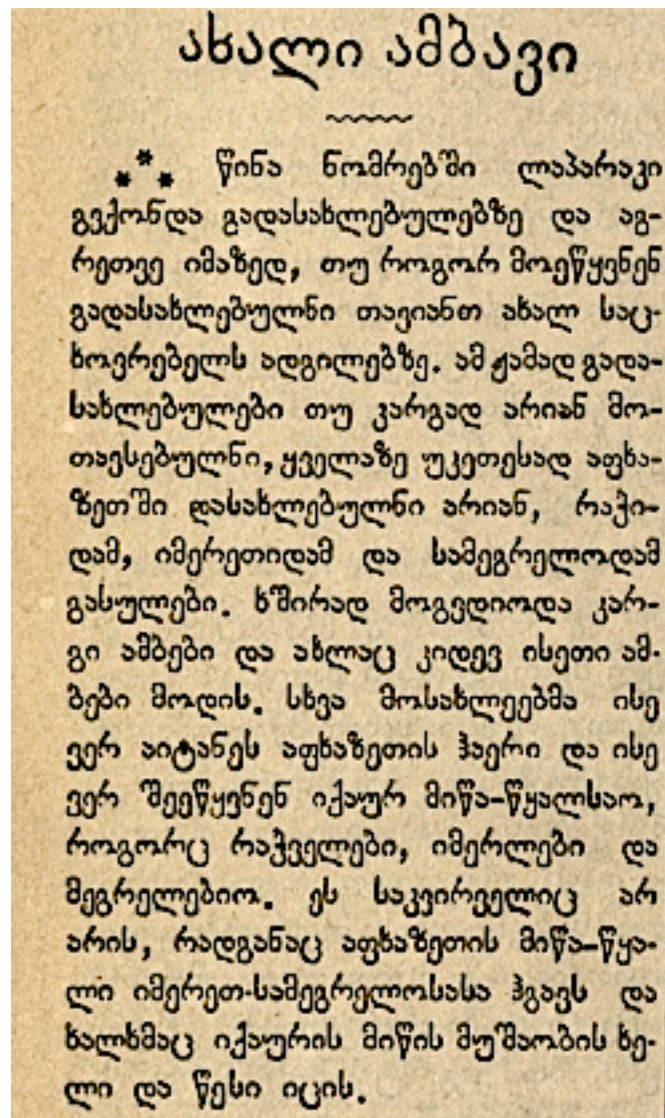 ახალი ამბავი
⁎*⁎ წინა ნომრებში ლაპარაკი
გვქონდა გადასახლებულებზე და აგ-
რეთვე იმაზედ, თუ როგორ მოეწყვნენ
გადასახლებულნი თავიანთ ახალ საც-
ხოვრებელს ადგილებზე. ამ ჟამად გადა-
სახლებულები თუ კარგად არიან მო-
თავსებულნი, ყველაზე უკეთესად აფხა-
ზეთში დასახლებულნი არიან, რაჭი-
დამ, იმერეთიდამ და სამეგრელოდამ
გასულები. ხშირად მოგვდიოდა კარ-
გი ამბები და ახლაც კიდევ ისეთი ამ-
ბები მოდის. სხვა მოსახლეებმა ისე
ვერ აიტანეს აფხაზეთის ჰაერი და ისე
ვერ შეეწყვნენ იქაურ მიწა-წყალსაო,
როგორც რაჭველები, იმერლები და
მეგრელებიო. ეს საკვირველიც არ
არის, რადგანაც აფხაზეთის მიწა-წყა-
ლი იმერეთ-სამეგრელოსასა ჰგავს და
ხალხმაც იქაურის მიწის მუშაობის ხე-
ლი და წესი იცის.